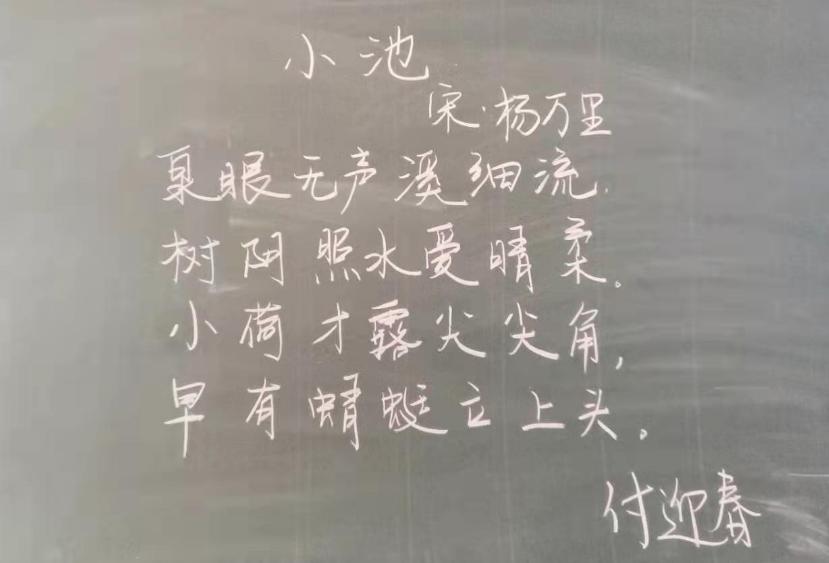 小池
宋·杨万里
泉眼无声溪细流,
树阴照水爱晴柔。
小荷才露尖尖角,
早有蜻蜓立上头。
付迎春